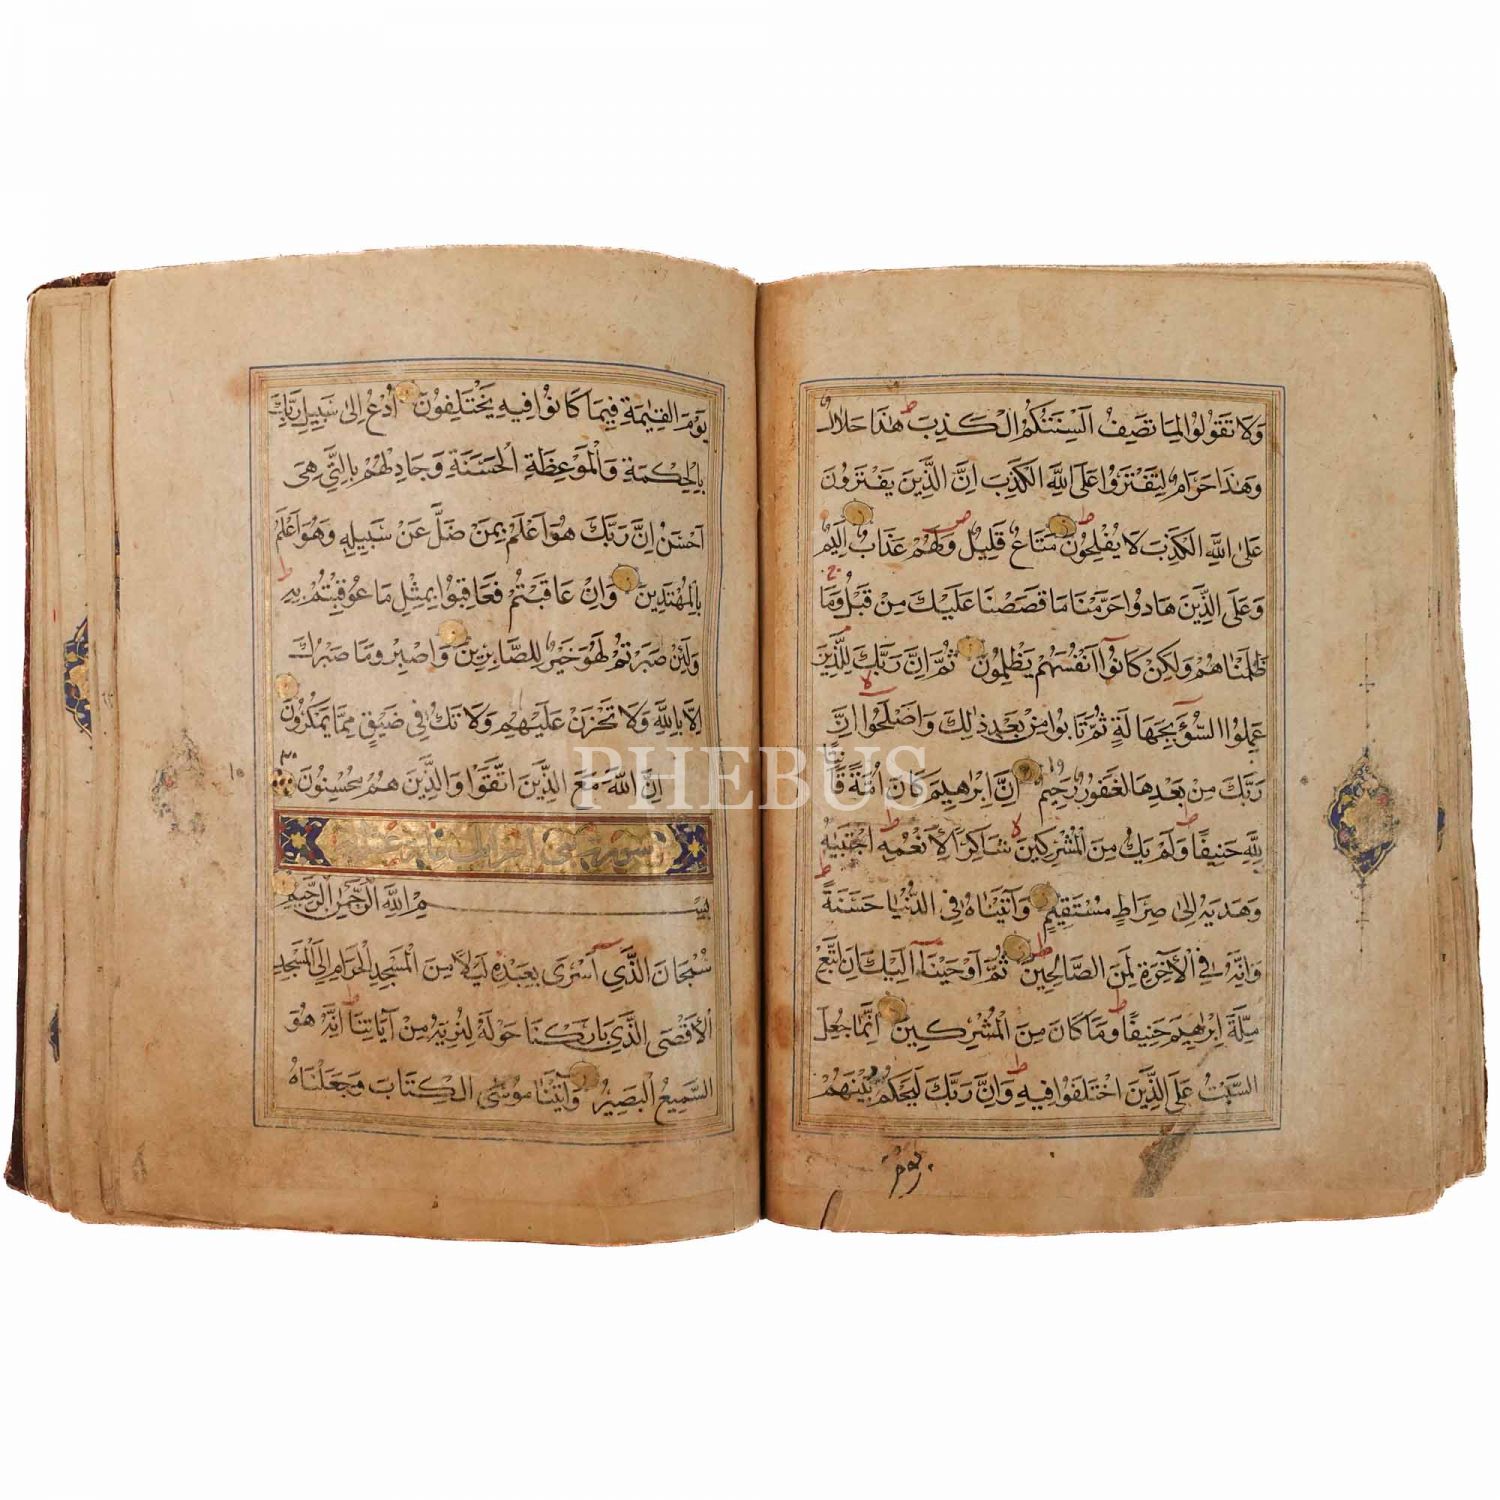 وَلَا تَقُولُوا لِمَا تَصِفُ اَلْسِنَتُكُمُ الْكَذِبَ هٰذَا حَلَالٌ
وَهٰذَا حَرَامٌ لِتَفْتَرُوا عَلَى اللّٰهِ الْكَذِبَ اِنَّ الَّذِينَ يَفْتَرُونَ
عَلَى اللّٰهِ الْكَذِبَ لَا يُفْلِحُونَ مَتَاعٌ قَلِيلٌ وَلَهُمْ عَذَابٌ اَلِيمٌ
وَعَلَى الَّذِينَ هَادُوا حَرَّمْنَا مَا قَصَصْنَا عَلَيْكَ مِنْ قَبْلُ وَمَا
ظَلَمْنَاهُمْ وَلٰكِنْ كَانُوا اَنْفُسَهُمْ يَظْلِمُونَ ثُمَّ اِنَّ رَبَّكَ لِلَّذِينَ
عَمِلُوا السُّوٓءَ بِجَهَالَةٍ ثُمَّ تَابُوا مِنْ بَعْدِ ذٰلِكَ وَاَصْلَحُوا اِنَّ
رَبَّكَ مِنْ بَعْدِهَا لَغَفُورٌ رَحِيمٌ اِنَّ اِبْرٰهِيمَ كَانَ اُمَّةً قَانِتًا
لِلّٰهِ حَنِيفًا وَلَمْ يَكُ مِنَ الْمُشْرِكِينَ شَاكِرًا لِاَنْعُمِهِ اجْتَبٰيهُ
وَهَدٰيهُ اِلٰى صِرَاطٍ مُسْتَقِيمٍ وَاٰتَيْنَاهُ فِي الدُّنْيَا حَسَنَةً
وَاِنَّهُ فِي الْاٰخِرَةِ لَمِنَ الصَّالِحِينَ ثُمَّ اَوْحَيْنَا اِلَيْكَ اَنِ اتَّبِعْ
مِلَّةَ اِبْرٰهِيمَ حَنِيفًا وَمَا كَانَ مِنَ الْمُشْرِكِينَ اِنَّمَا جُعِلَ
السَّبْتُ عَلَى الَّذِينَ اخْتَلَفُوا فِيهِ وَاِنَّ رَبَّكَ لَيَحْكُمُ بَيْنَهُمْ
يوم
يَوْمَ الْقِيٰمَةِ فِيمَا كَانُوا فِيهِ يَخْتَلِفُونَ اُدْعُ اِلٰى سَبِيلِ رَبِّكَ
بِالْحِكْمَةِ وَالْمَوْعِظَةِ الْحَسَنَةِ وَجَادِلْهُمْ بِالَّتِي هِيَ
اَحْسَنُ اِنَّ رَبَّكَ هُوَ اَعْلَمُ بِمَنْ ضَلَّ عَنْ سَبِيلِهِ وَهُوَ اَعْلَمُ
بِالْمُهْتَدِينَ وَاِنْ عَاقَبْتُمْ فَعَاقِبُوا بِمِثْلِ مَا عُوقِبْتُمْ بِهِ
وَلَئِنْ صَبَرْتُمْ لَهُوَ خَيْرٌ لِلصَّابِرِينَ وَاصْبِرْ وَمَا صَبْرُكَ
اِلَّا بِاللّٰهِ وَلَا تَحْزَنْ عَلَيْهِمْ وَلَا تَكُ فِي ضَيْقٍ مِمَّا يَمْكُرُونَ
اِنَّ اللّٰهَ مَعَ الَّذِينَ اتَّقَوْا وَالَّذِينَ هُمْ مُحْسِنُونَ
بِسْمِ اللّٰهِ الرَّحْمٰنِ الرَّحِيمِ
سُبْحَانَ الَّذِي اَسْرٰى بِعَبْدِهِ لَيْلًا مِنَ الْمَسْجِدِ الْحَرَامِ اِلَى الْمَسْجِدِ
الْاَقْصَى الَّذِي بَارَكْنَا حَوْلَهُ لِنُرِيَهُ مِنْ اٰيَاتِنَا اِنَّهُ هُوَ
السَّمِيعُ الْبَصِيرُ وَاٰتَيْنَا مُوسَى الْكِتَابَ وَجَعَلْنَاهُ
PHEBUS